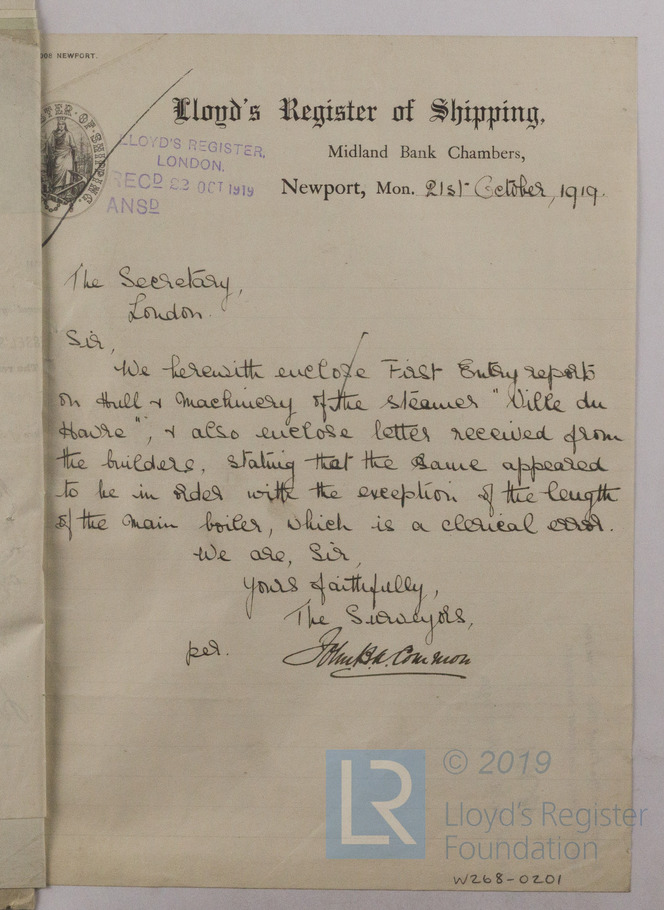 NEWPORT.
Lloyd's Register of Shipping,
Midland Bank Chambers,
Newport, Mon. 21st October, 1919.
LLOYD'S REGISTER,
LONDON.
RECD 23 OCT 1919
ANSD
The Secretary,
London.
Sir,
We herewith enclose First Entry reports
on Hull & Machinery of the steamer "Ville du
Havre", & also enclose letter received from
the builders, stating that the same appeared
to be in order with the exception of the length
of the main boiler, which is a clerical error.
We are, Sir,
Yours faithfully,
The Surveyors,
per. John Common
© 2019
LR
Lloyd's Register
Foundation
W268-0201